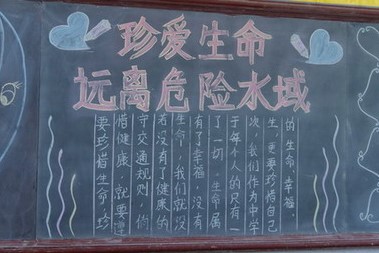 珍爱生命
远离危险水域
要珍惜生命,珍
惜健康,就要遵
守交通规则,倘
若没有了健康的
生命,我们就没
有了幸福,没有
了一切,生命属
于每个人的只有一
次,我们作为中学
生,更要珍惜自己
的生命,幸福。